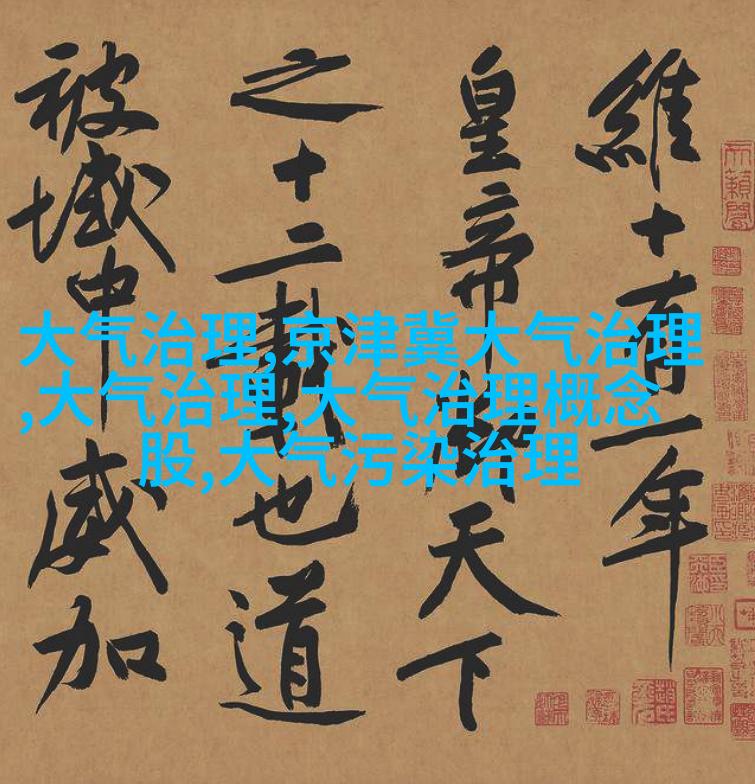 維十有一年
皇帝御天下
之十二載也道
被域中威加
大气治理,京津冀大气治理
,大气治理,大气治理概念
股,大气污染治理